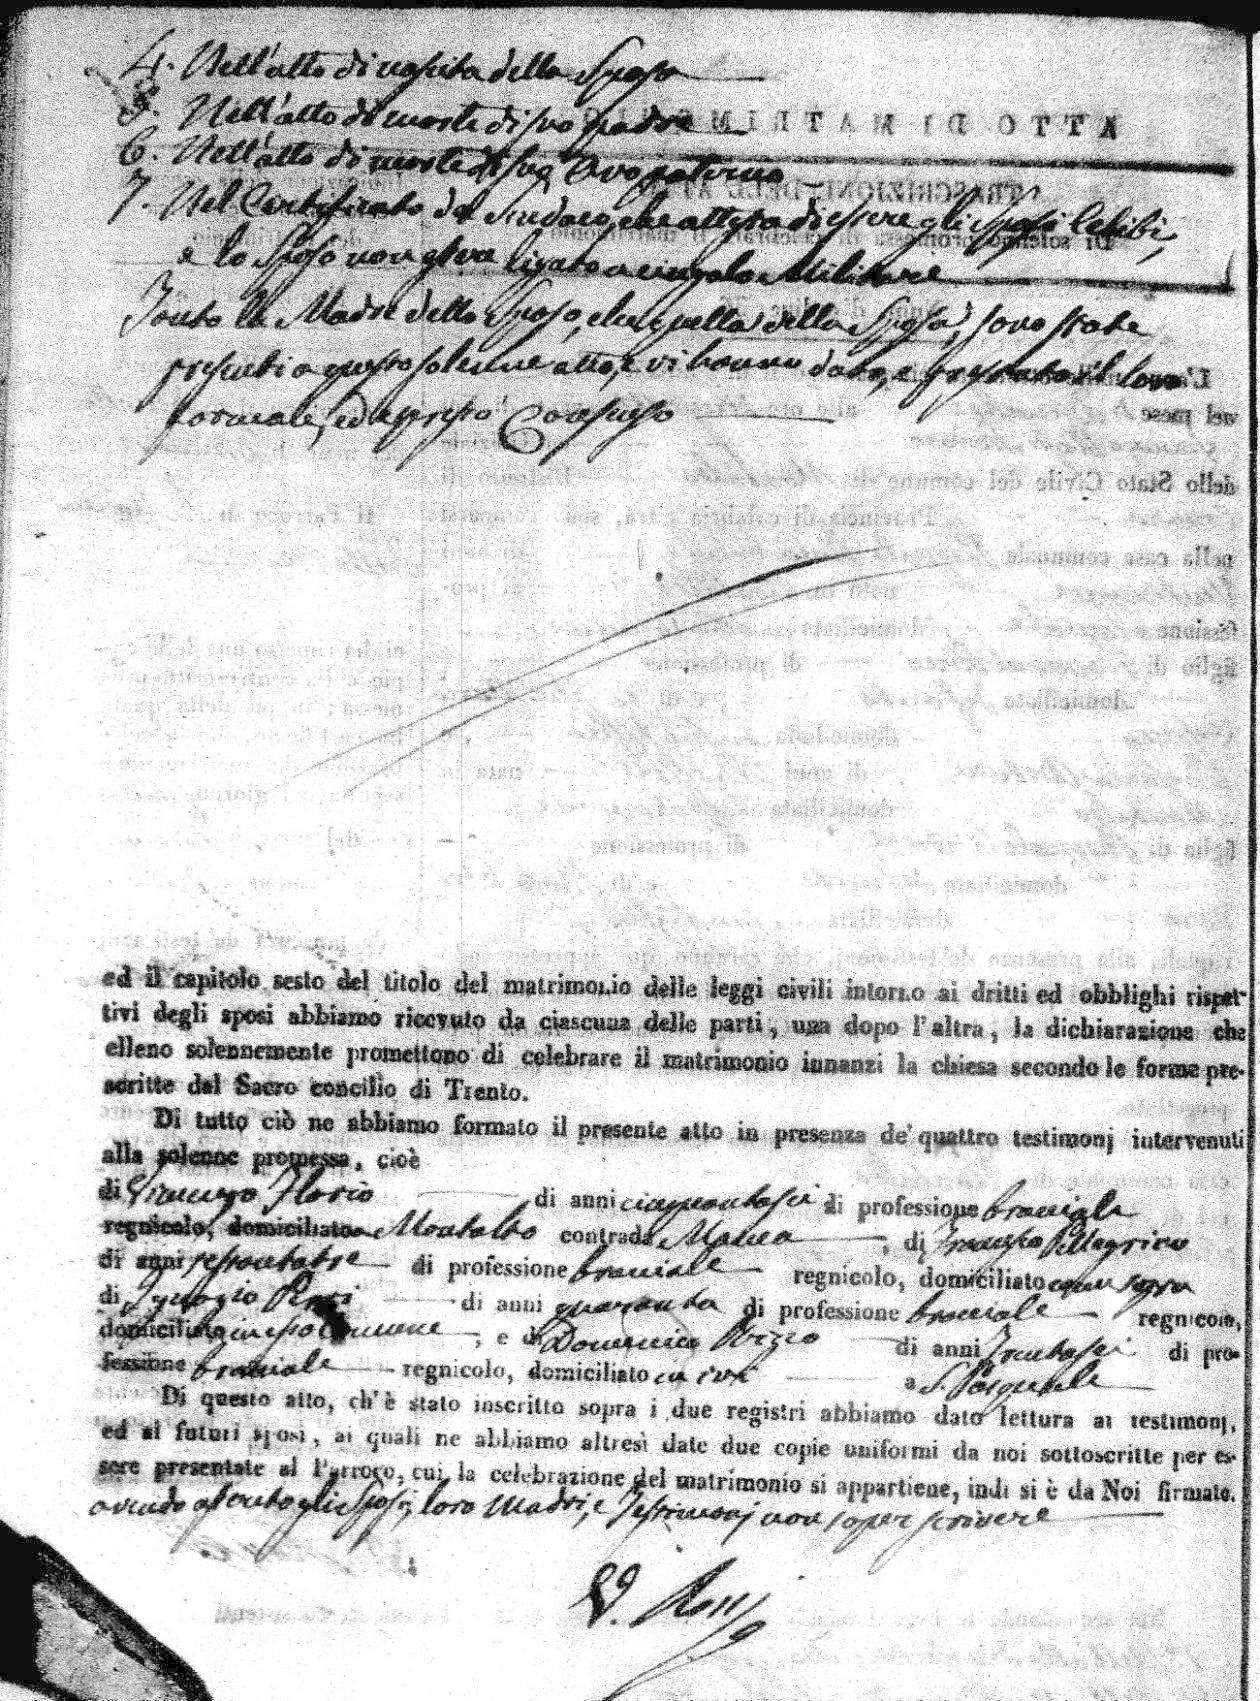 4. Nell'atto di nascita della Sposa
5. Nell'atto di morte di suo padre
6. Nell'atto di morte di suo Avo paterno
7. Nel Certificato del Sindaco, che attesta di essere gli Sposi Celibi,
e lo Sposo non essere ligato a cingolo Militare
Tanto la Madre dello Sposo, che quella della Sposa, sono state
presenti a questo solenne atto, e vi hanno dato, e prestato il loro
formale, ed espresso Consenso
ed il capitolo sesto del titolo del matrimonio delle leggi civili intorno ai dritti ed obblighi rispet-
tivi degli sposi abbiamo ricevuto da ciascuna delle parti, una dopo l'altra, la dichiarazione che
elleno solennemente promettono di celebrare il matrimonio innanzi la chiesa secondo le forme pre-
scritte dal Sacro concilio di Trento.
Di tutto ciò ne abbiamo formato il presente atto in presenza de' quattro testimonj intervenuti
alla solenne promessa, cioè
di Florio di anni cinquantasei di professione bracciale
regnicolo, domiciliato Montalto contrada Manca, di Pellegrino
di anni di professione bracciale regnicolo, domiciliato come sopra
di Ignazio di anni quaranta di professione bracciale regnicolo,
domiciliato in esso comune, e di Domenico di anni trentasei di pro-
fessione bracciale regnicolo, domiciliato in ivi a S. Pasquale
Di questo atto, ch'è stato inscritto sopra i due registri abbiamo dato lettura ai testimonj,
ed ai futuri sposi, ai quali ne abbiamo altresì date due copie uniformi da noi sottoscritte per es-
sere presentate al Parroco, cui la celebrazione del matrimonio si appartiene, indi si è da Noi firmato.
avendo asserito gli Sposi, loro Madri, e Testimonj non saper scrivere